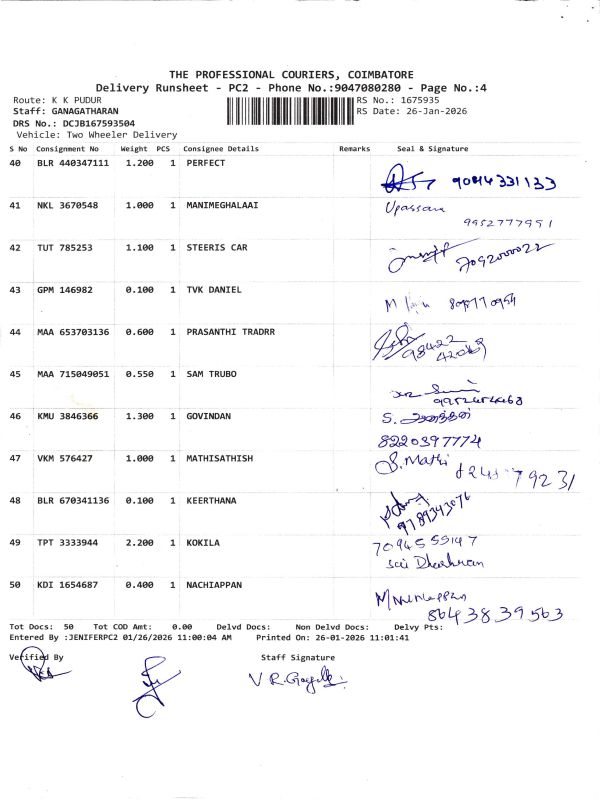 THE PROFESSIONAL COURIERS, COIMBATORE
Delivery Runsheet - PC2 - Phone No.:9047080280 - Page No.:4
Route: K K PUDUR RS No.: 1675935
Staff: GANAGATHARAN RS Date: 26-Jan-2026
DRS No.: DCJB167593504
Vehicle: Two Wheeler Delivery
S No Consignment No Weight PCS Consignee Details Remarks Seal & Signature
40 BLR 440347111 1.200 1 PERFECT
9044331133
41 NKL 3670548 1.000 1 MANIMEGHALAAI Upassana
9952777951
42 TUT 785253 1.100 1 STEERIS CAR
7092000022
43 GPM 146982 0.100 1 TVK DANIEL
M
44 MAA 653703136 0.600 1 PRASANTHI TRADRR
98422
42069
45 MAA 715049051 0.550 1 SAM TRUBO
46 KMU 3846366 1.300 1 GOVINDAN S.
8220397774
47 VKM 576427 1.000 1 MATHISATHISH S. Mathi
79231
48 BLR 670341136 0.100 1 KEERTHANA
9789343076
49 TPT 3333944 2.200 1 KOKILA 7094555147
Sai Dharshan
50 KDI 1654687 0.400 1 NACHIAPPAN
8643839563
Tot Docs: 50 Tot COD Amt: 0.00 Delvd Docs: Non Delvd Docs: Delvy Pts:
Entered By :JENIFERPC2 01/26/2026 11:00:04 AM Printed On: 26-01-2026 11:01:41
Verified By Staff Signature
V R.